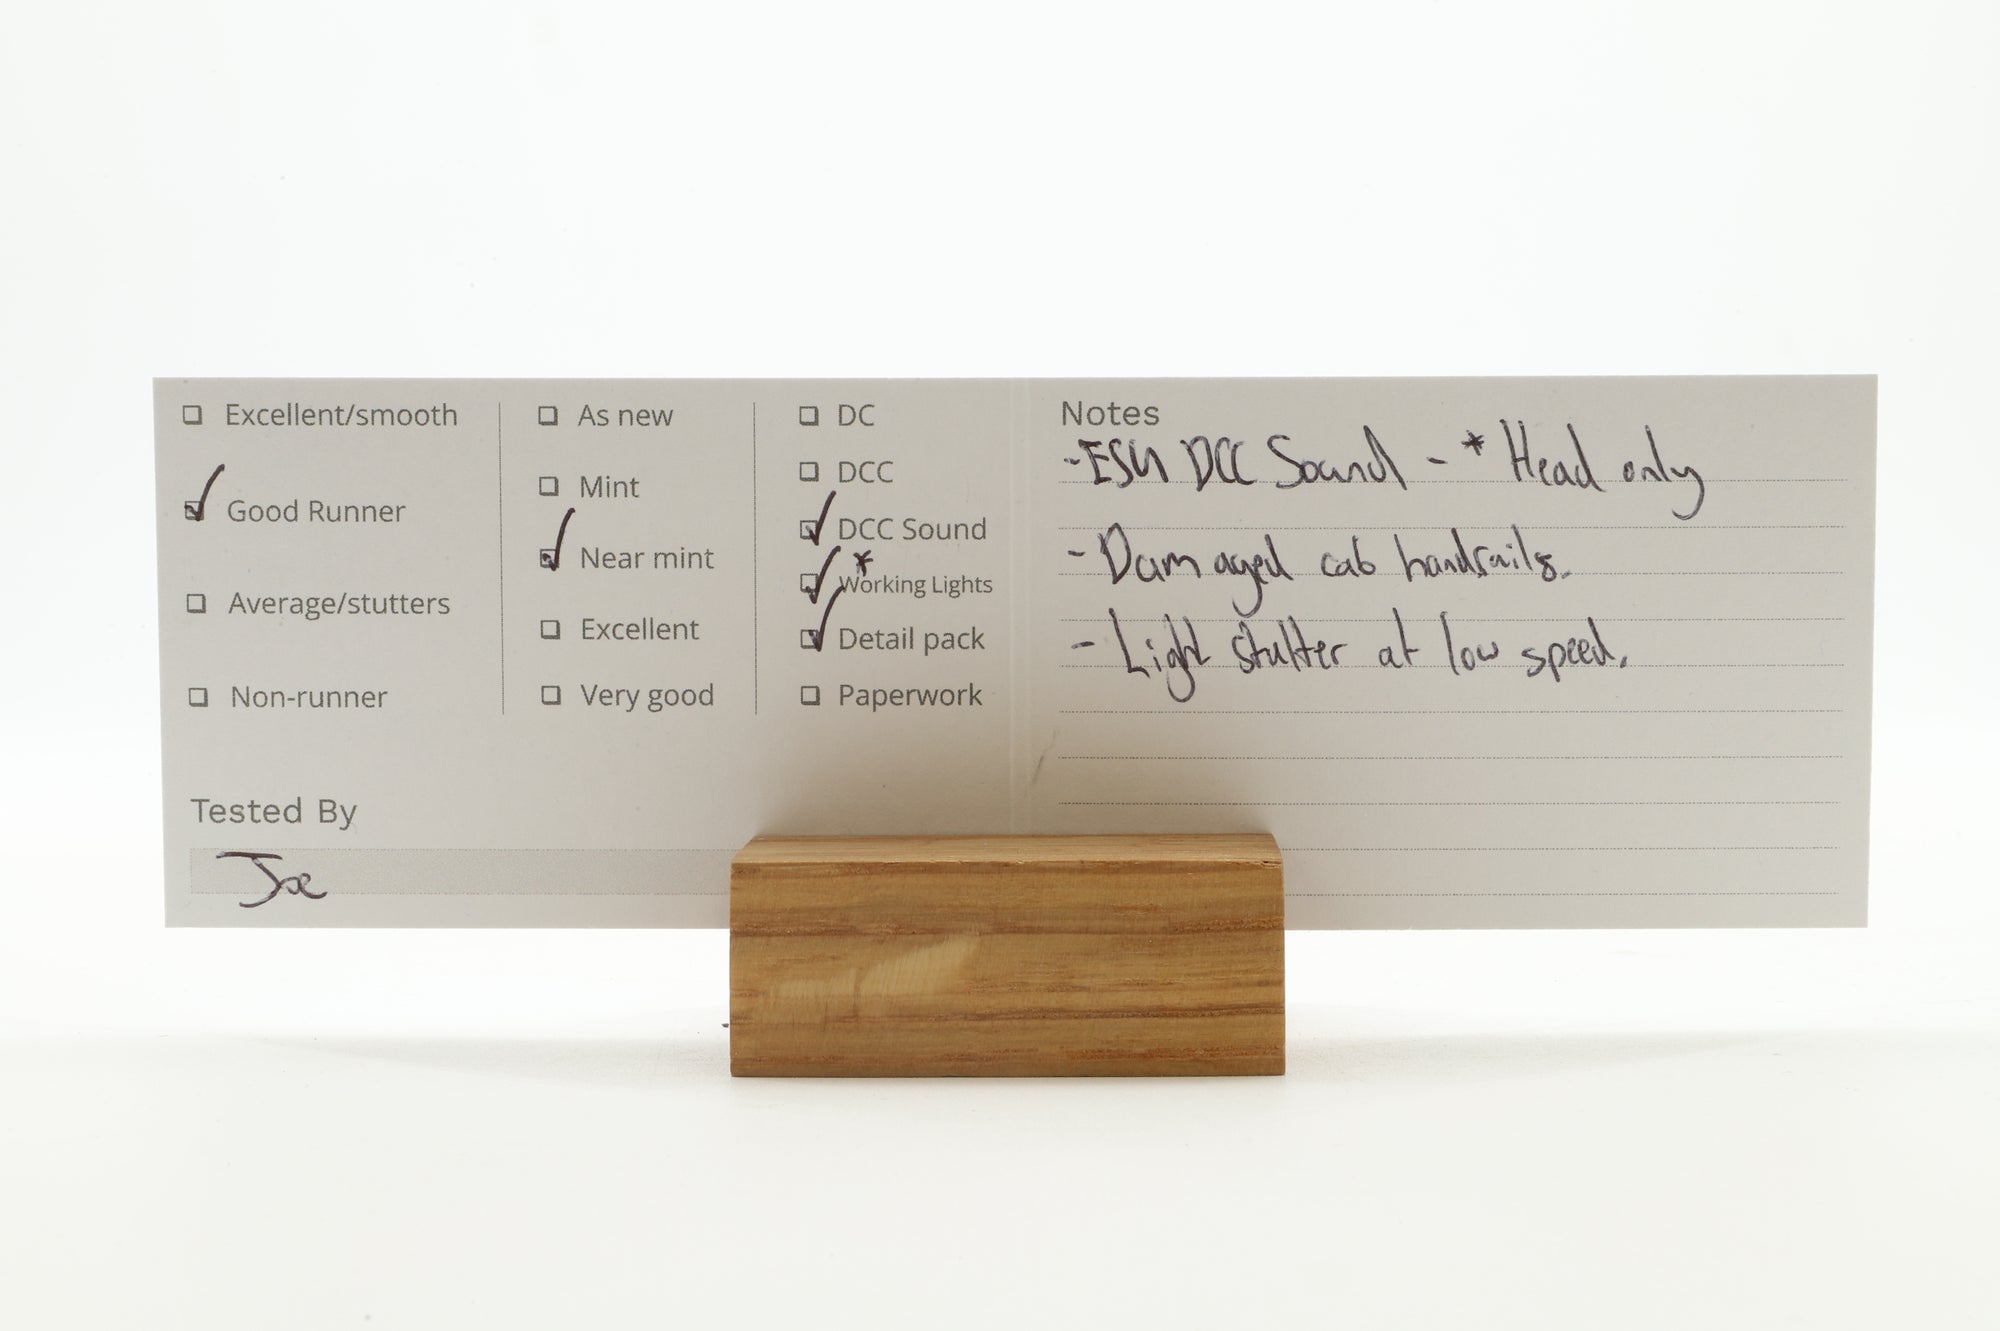 Excellent/smooth
Good Runner
Average/stutters
Non-runner
As new
Mint
Near mint
Excellent
Very good
DC
DCC
DCC Sound
*
Working Lights
Detail pack
Paperwork
Tested By
Joe
Notes
-ESU DCC Sound - * Head only
- Damaged cab handrails.
- Light stutter at low speed.